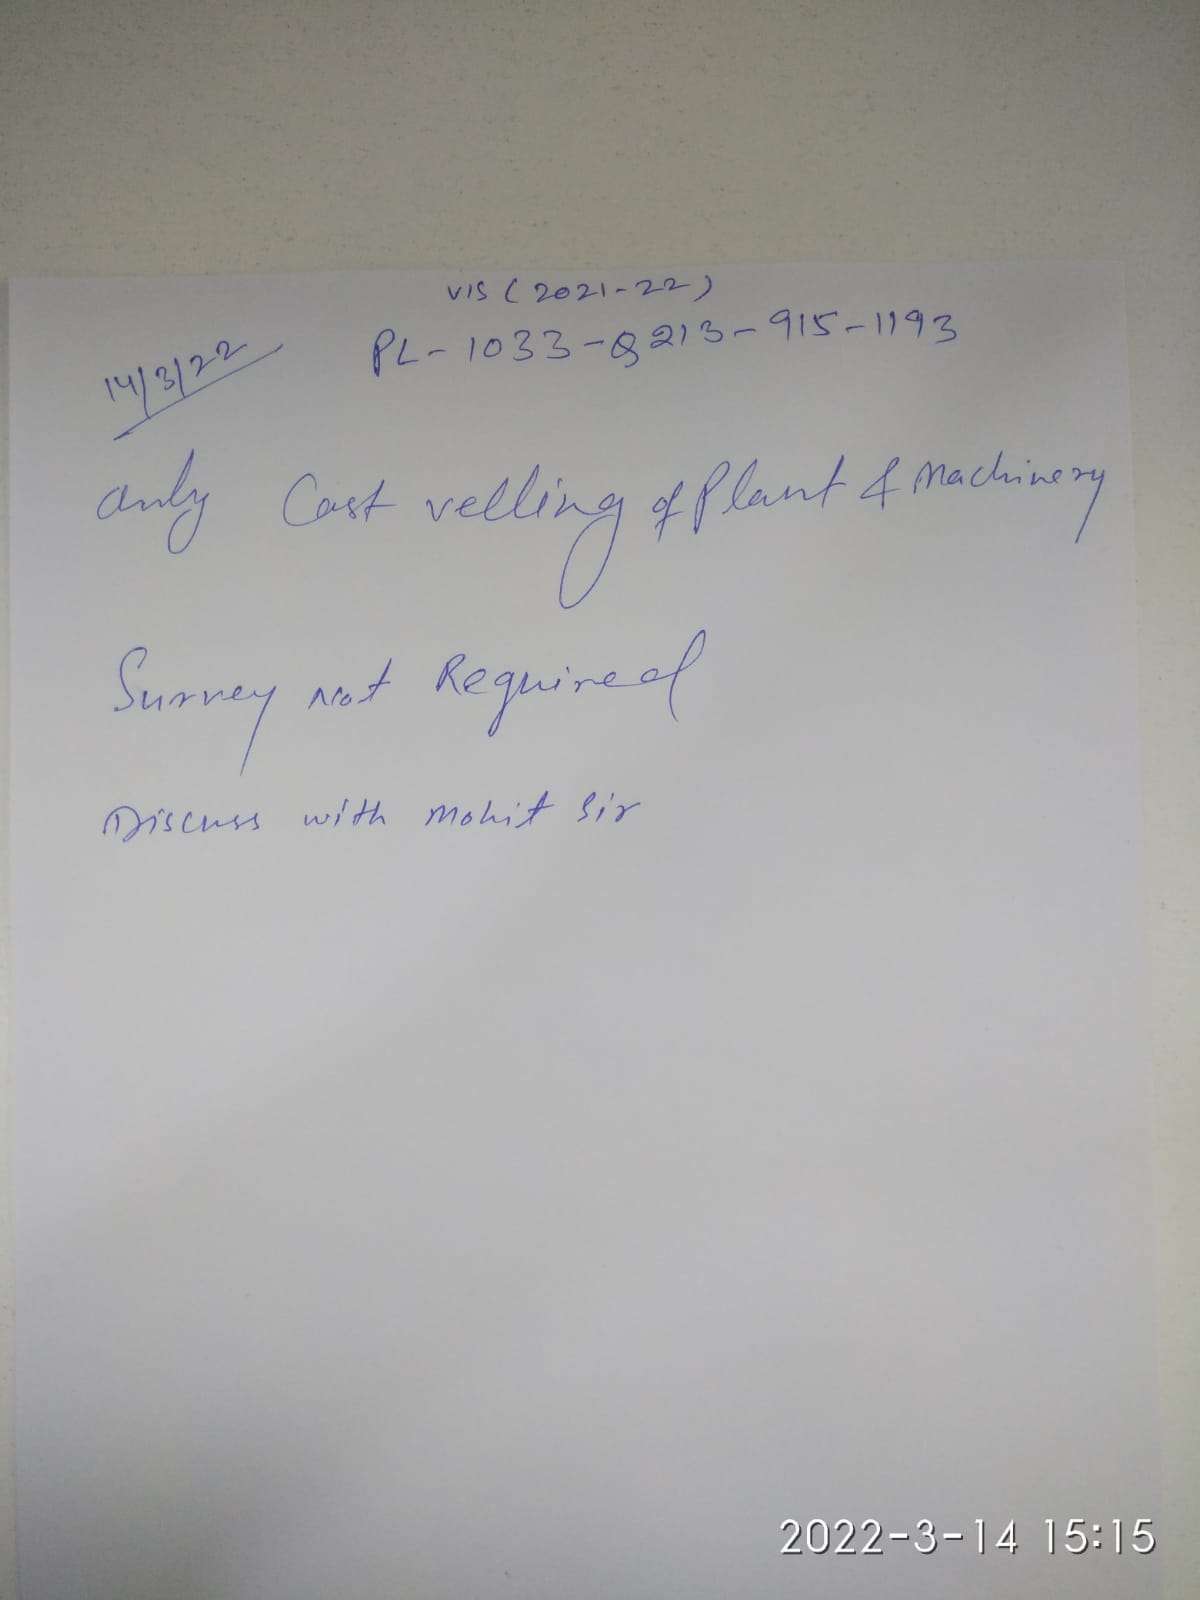 VIS (2021-22)
PL-1033-Q213-915-1193
14/3/22
Only Cost velling of Plant & Machinery
Survey not Required
Discuss with Mohit Sir
2022-3-14 15:15